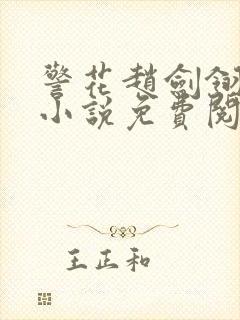 警花趙劍釵
小說免費閱
王正和